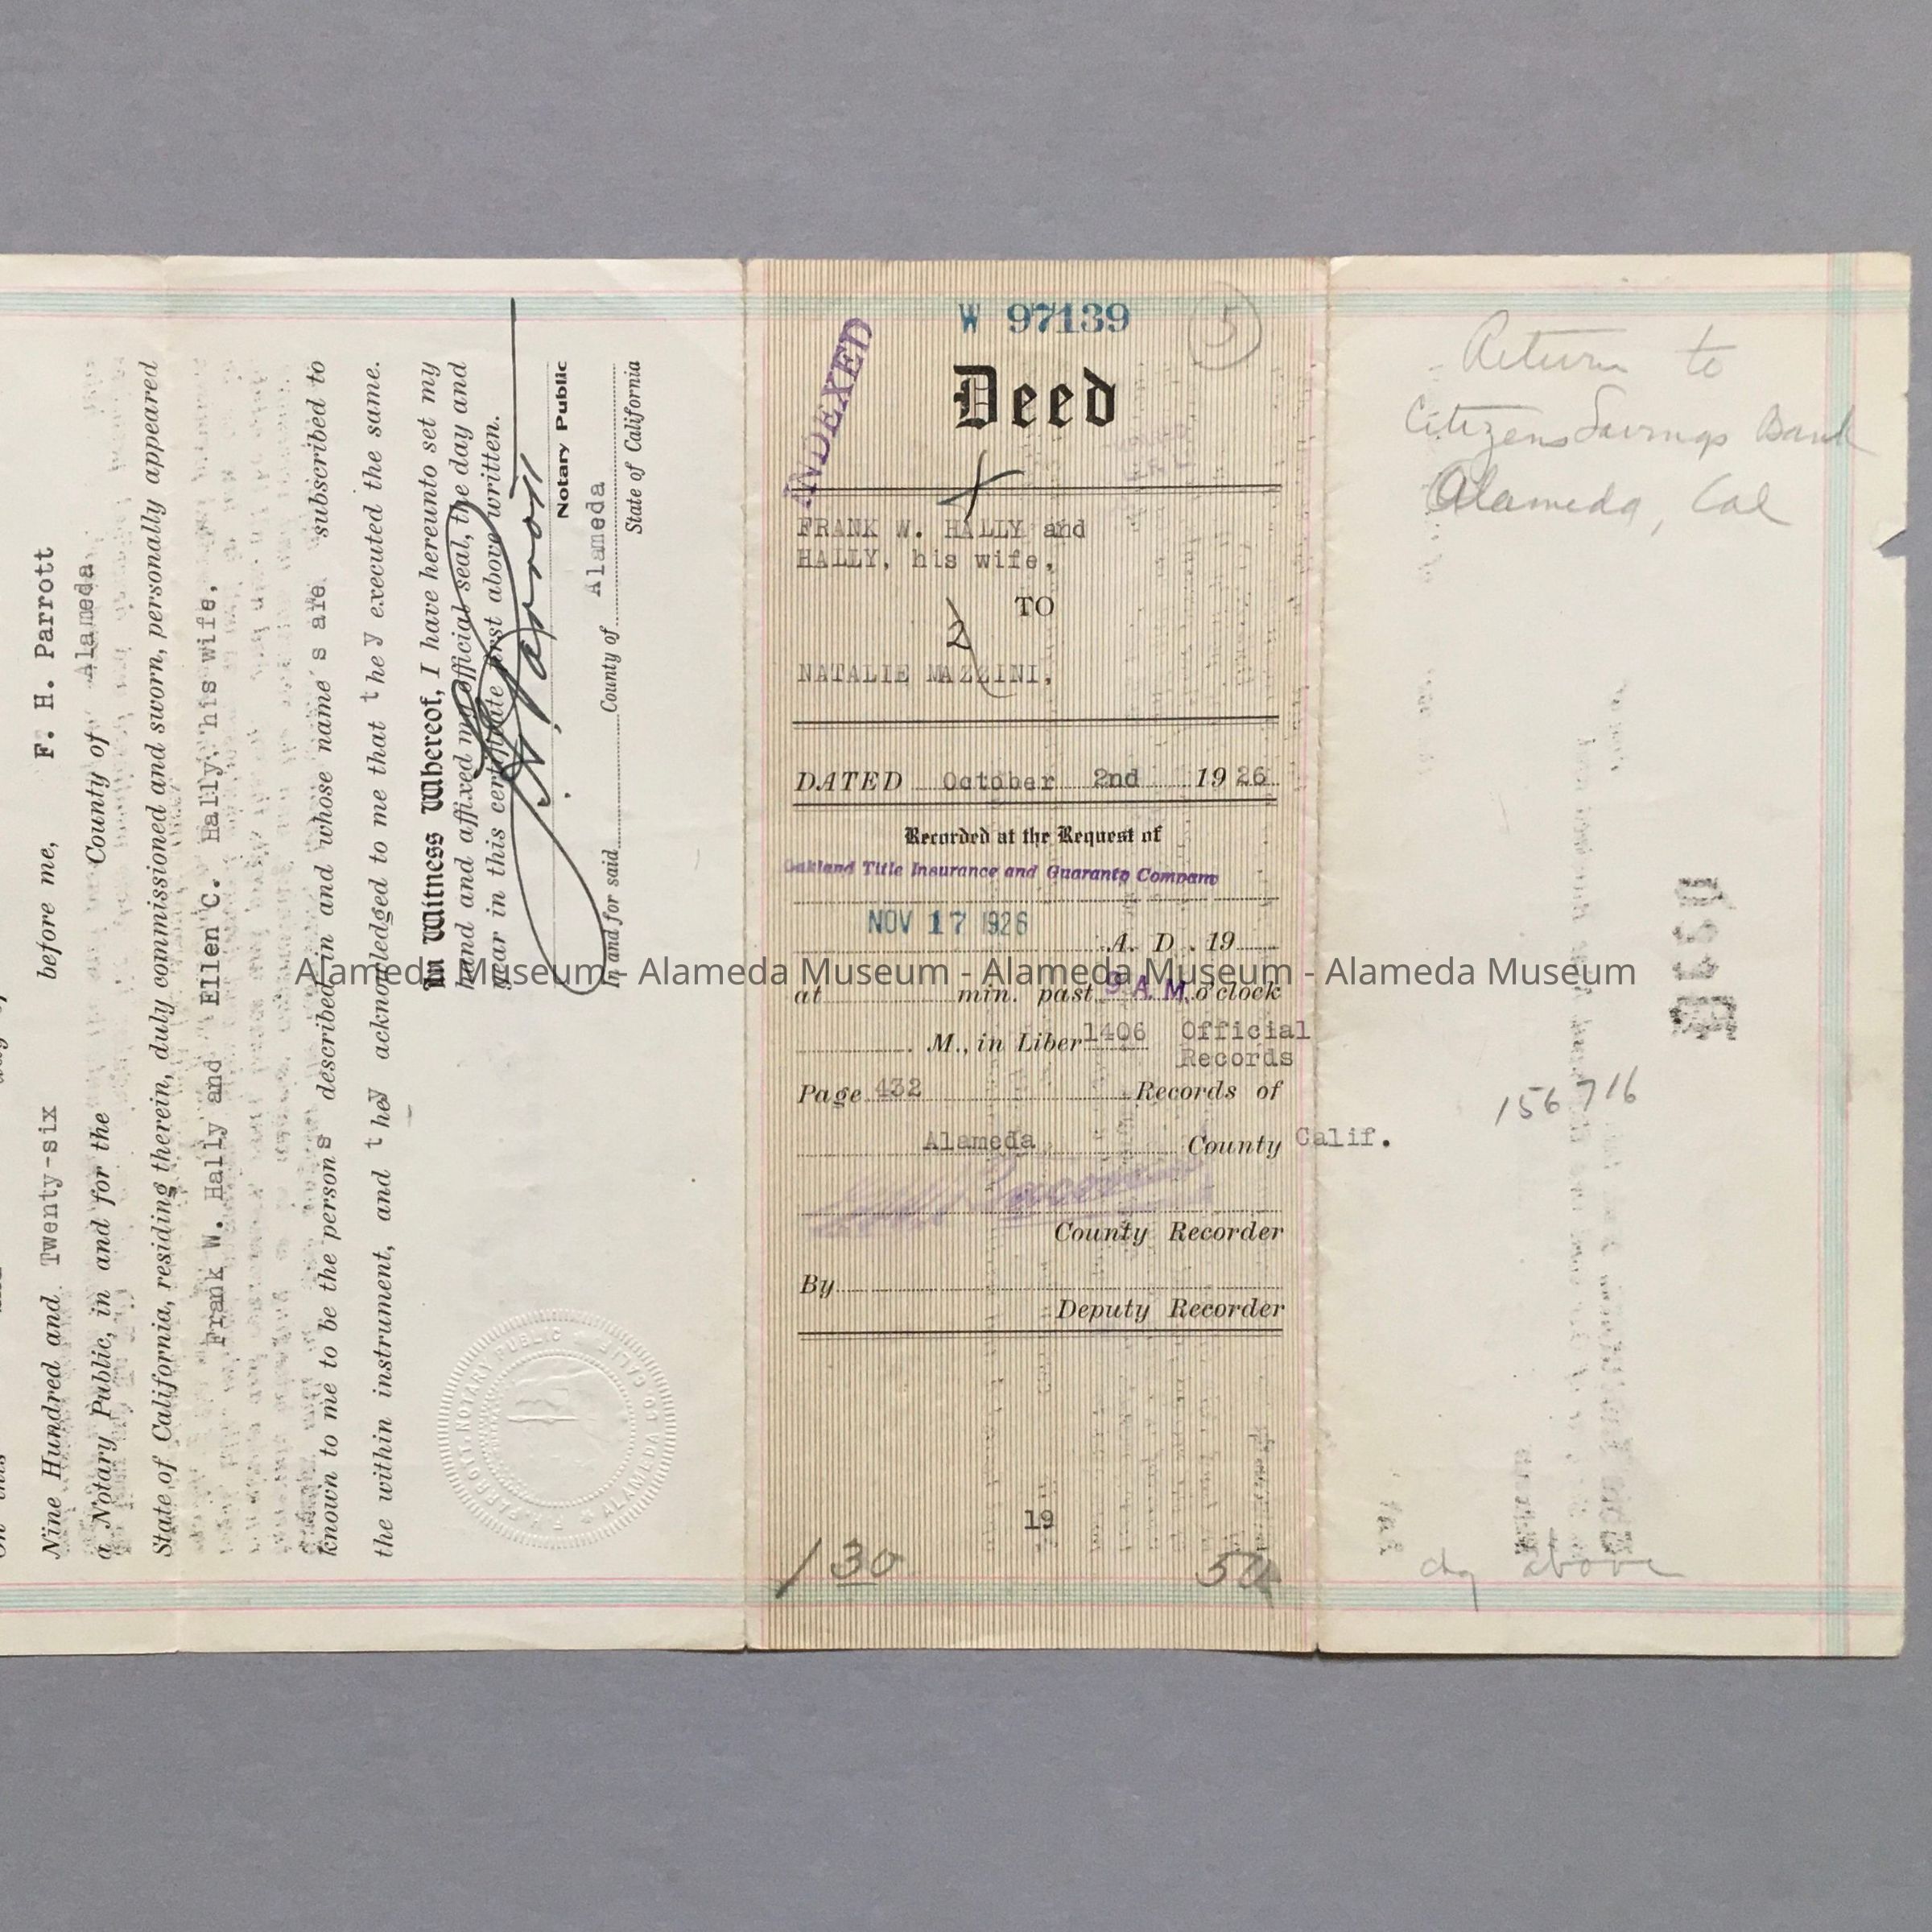 Nine Hundred and Twenty-six before me, F. H. Parrott
a Notary Public, in and for the County of Alameda
State of California, residing therein, duly commissioned and sworn, personally appeared
Frank W. Hally and Ellen C. Hally, his wife,
known to me to be the person s described in and whose name s are subscribed to
the within instrument, and t hey acknowledged to me that t he y executed the same.
In Witness Whereof, I have hereunto set my
hand and affixed my official seal, the day and
year in this certificate first above written.
Notary Public
In and for said County of Alameda
State of California
F. H. PARROTT. NOTARY PUBLIC
ALAMEDA CO. CALIF.
W 97139
5
INDEXED
Deed
FRANK W. HALLY and
HALLY, his wife,
TO
2
NATALIE MAZZINI,
DATED October 2nd 1926
Recorded at the Request of
Oakland Title Insurance and Guaranty Company
NOV 17 1926
A. D. 19
at min. past 9 A. M. o'clock
M., in Liber 1406 Official
Records
Page 432 Records of
Alameda County Calif.
County Recorder
By
Deputy Recorder
19
1 30 50
Return to
Citizens Savings Bank
Alameda, Cal
156716
chg above
Alameda Museum - Alameda Museum - Alameda Museum - Alameda Museum